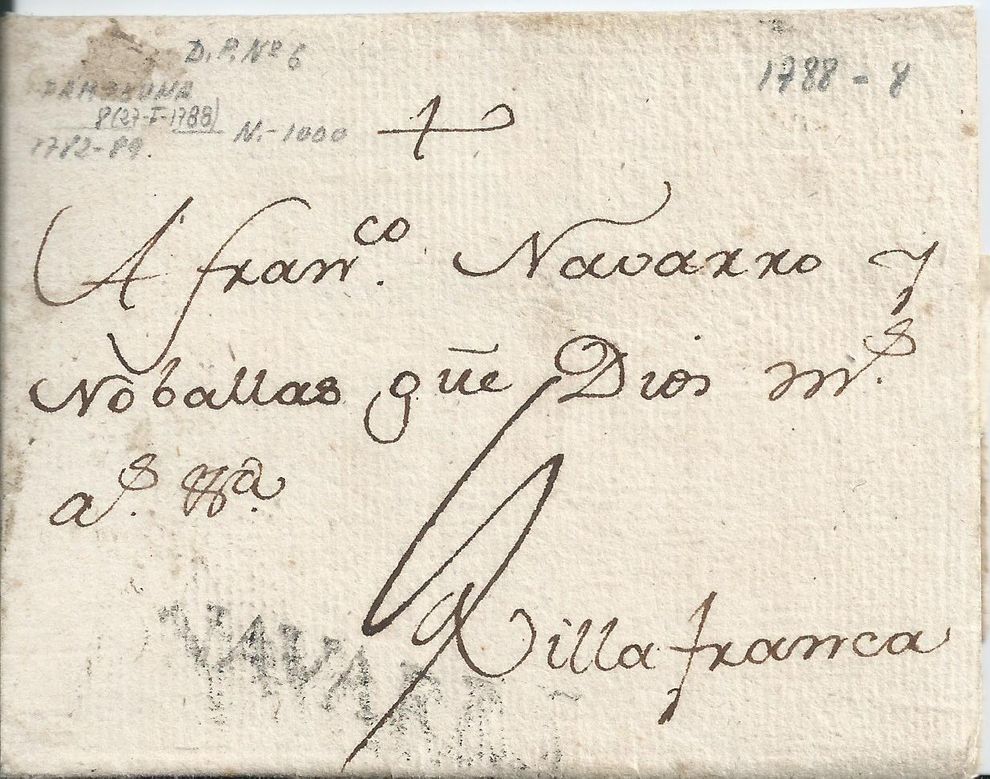 D.P. Nº 6
PAMPLONA
8(27-I-1788)
1782-89.
N.-1000
1788 - 8
A franco. Navarro y
Noballas que Dios ms.
as.
Villafranca
NAVARRA